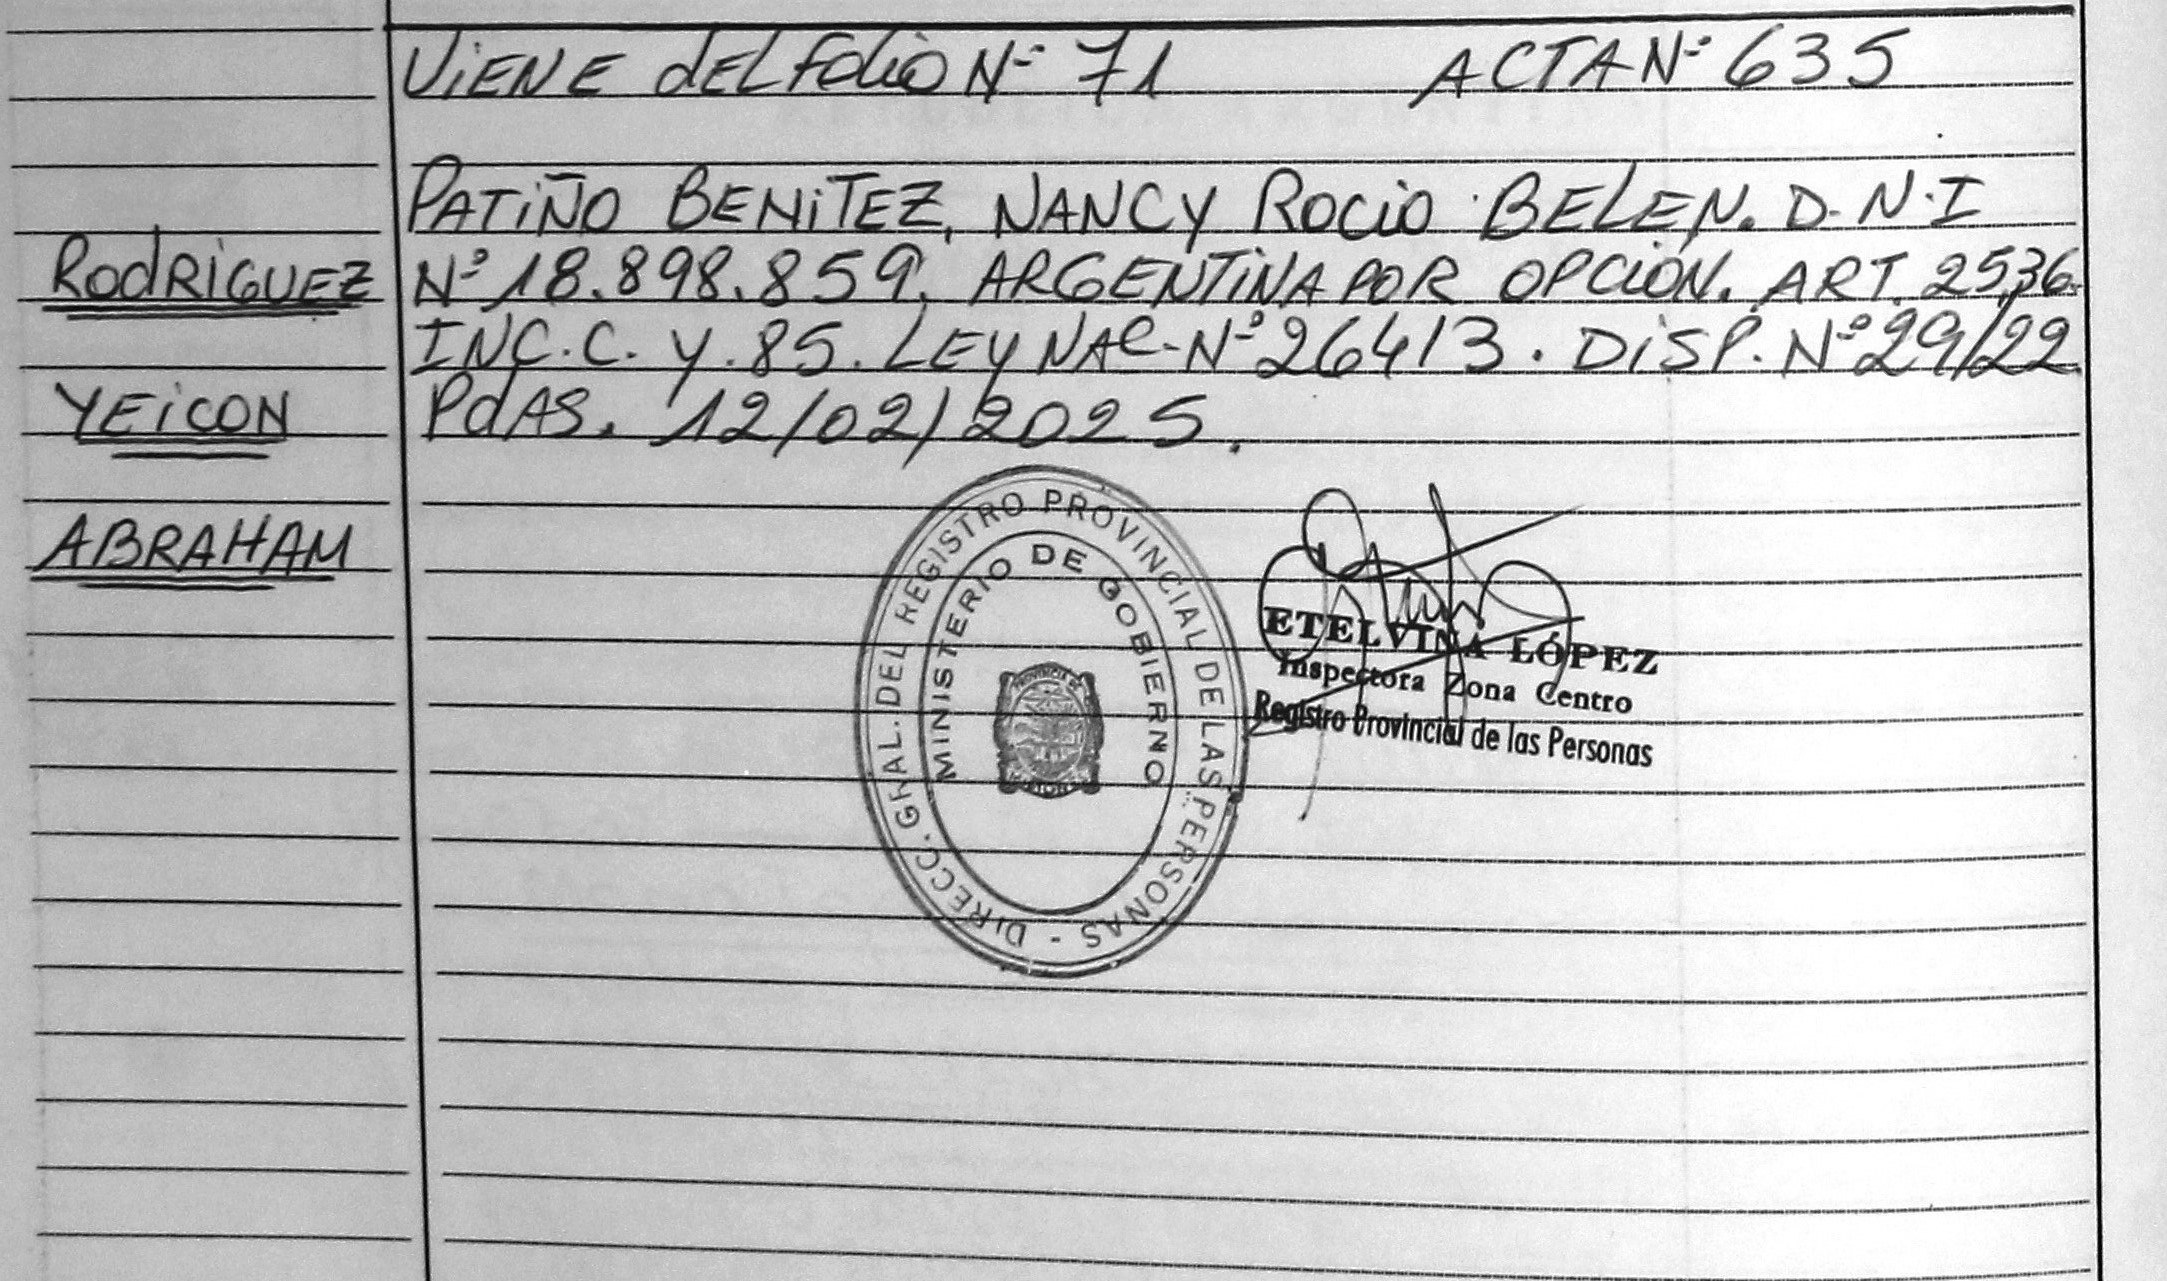 ViENE dEL Folio Nº 71 ACTA Nº 635
PATiÑO BENiTEZ, NANCY ROCiO BELEN. D.N.I
Nº 18.898.859, ARGENTiNA POR OPCION. ART. 25,36.
INC.C. Y.85. LEY NAC. Nº 26413. DiSP. Nº 29/22
PdAS. 12/02/2025.
RodRiGUEZ
YEiCON
ABRAHAM
DIRECC. GRAL. DEL REGISTRO PROVINCIAL DE LAS PERSONAS -
MINISTERIO DE GOBIERNO
ETELVINA LÓPEZ
Inspectora Zona Centro
Registro Provincial de las Personas